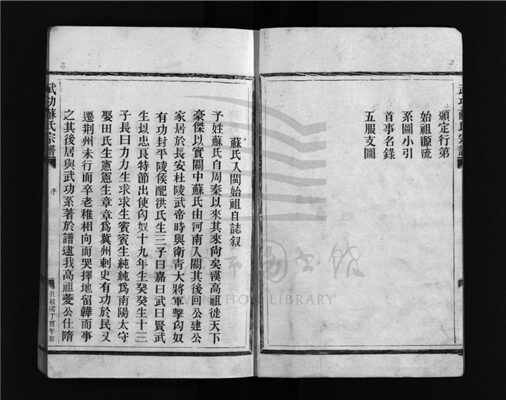 武功蘇氏宗譜
頒定行第
始祖源流
系圖小引
首事名錄
五服支圖
蘇氏入閩始祖自誌叙
予姓蘇氏自周秦以來其來尚矣漢高祖徙天下
豪傑以實關中蘇氏由河南入關其後回公建公
家居於長安杜陵武帝時與衛青大將軍擊匈奴
有功封平陵侯配洪氏生三子曰嘉曰武曰賢武
生以忠良特節出使匈奴十九年生癸癸生十三
子長曰力力生求求生賓賓生純純爲南陽太守
娶田氏生憲憲生章章爲冀州刺史有功於民又
遷荆州未行而卒老稚相向而哭擇地留韡而事
之其後居與武功系著於譜逮我高祖夔公仕隋
武功蘇氏宗譜
序
LIBRARY